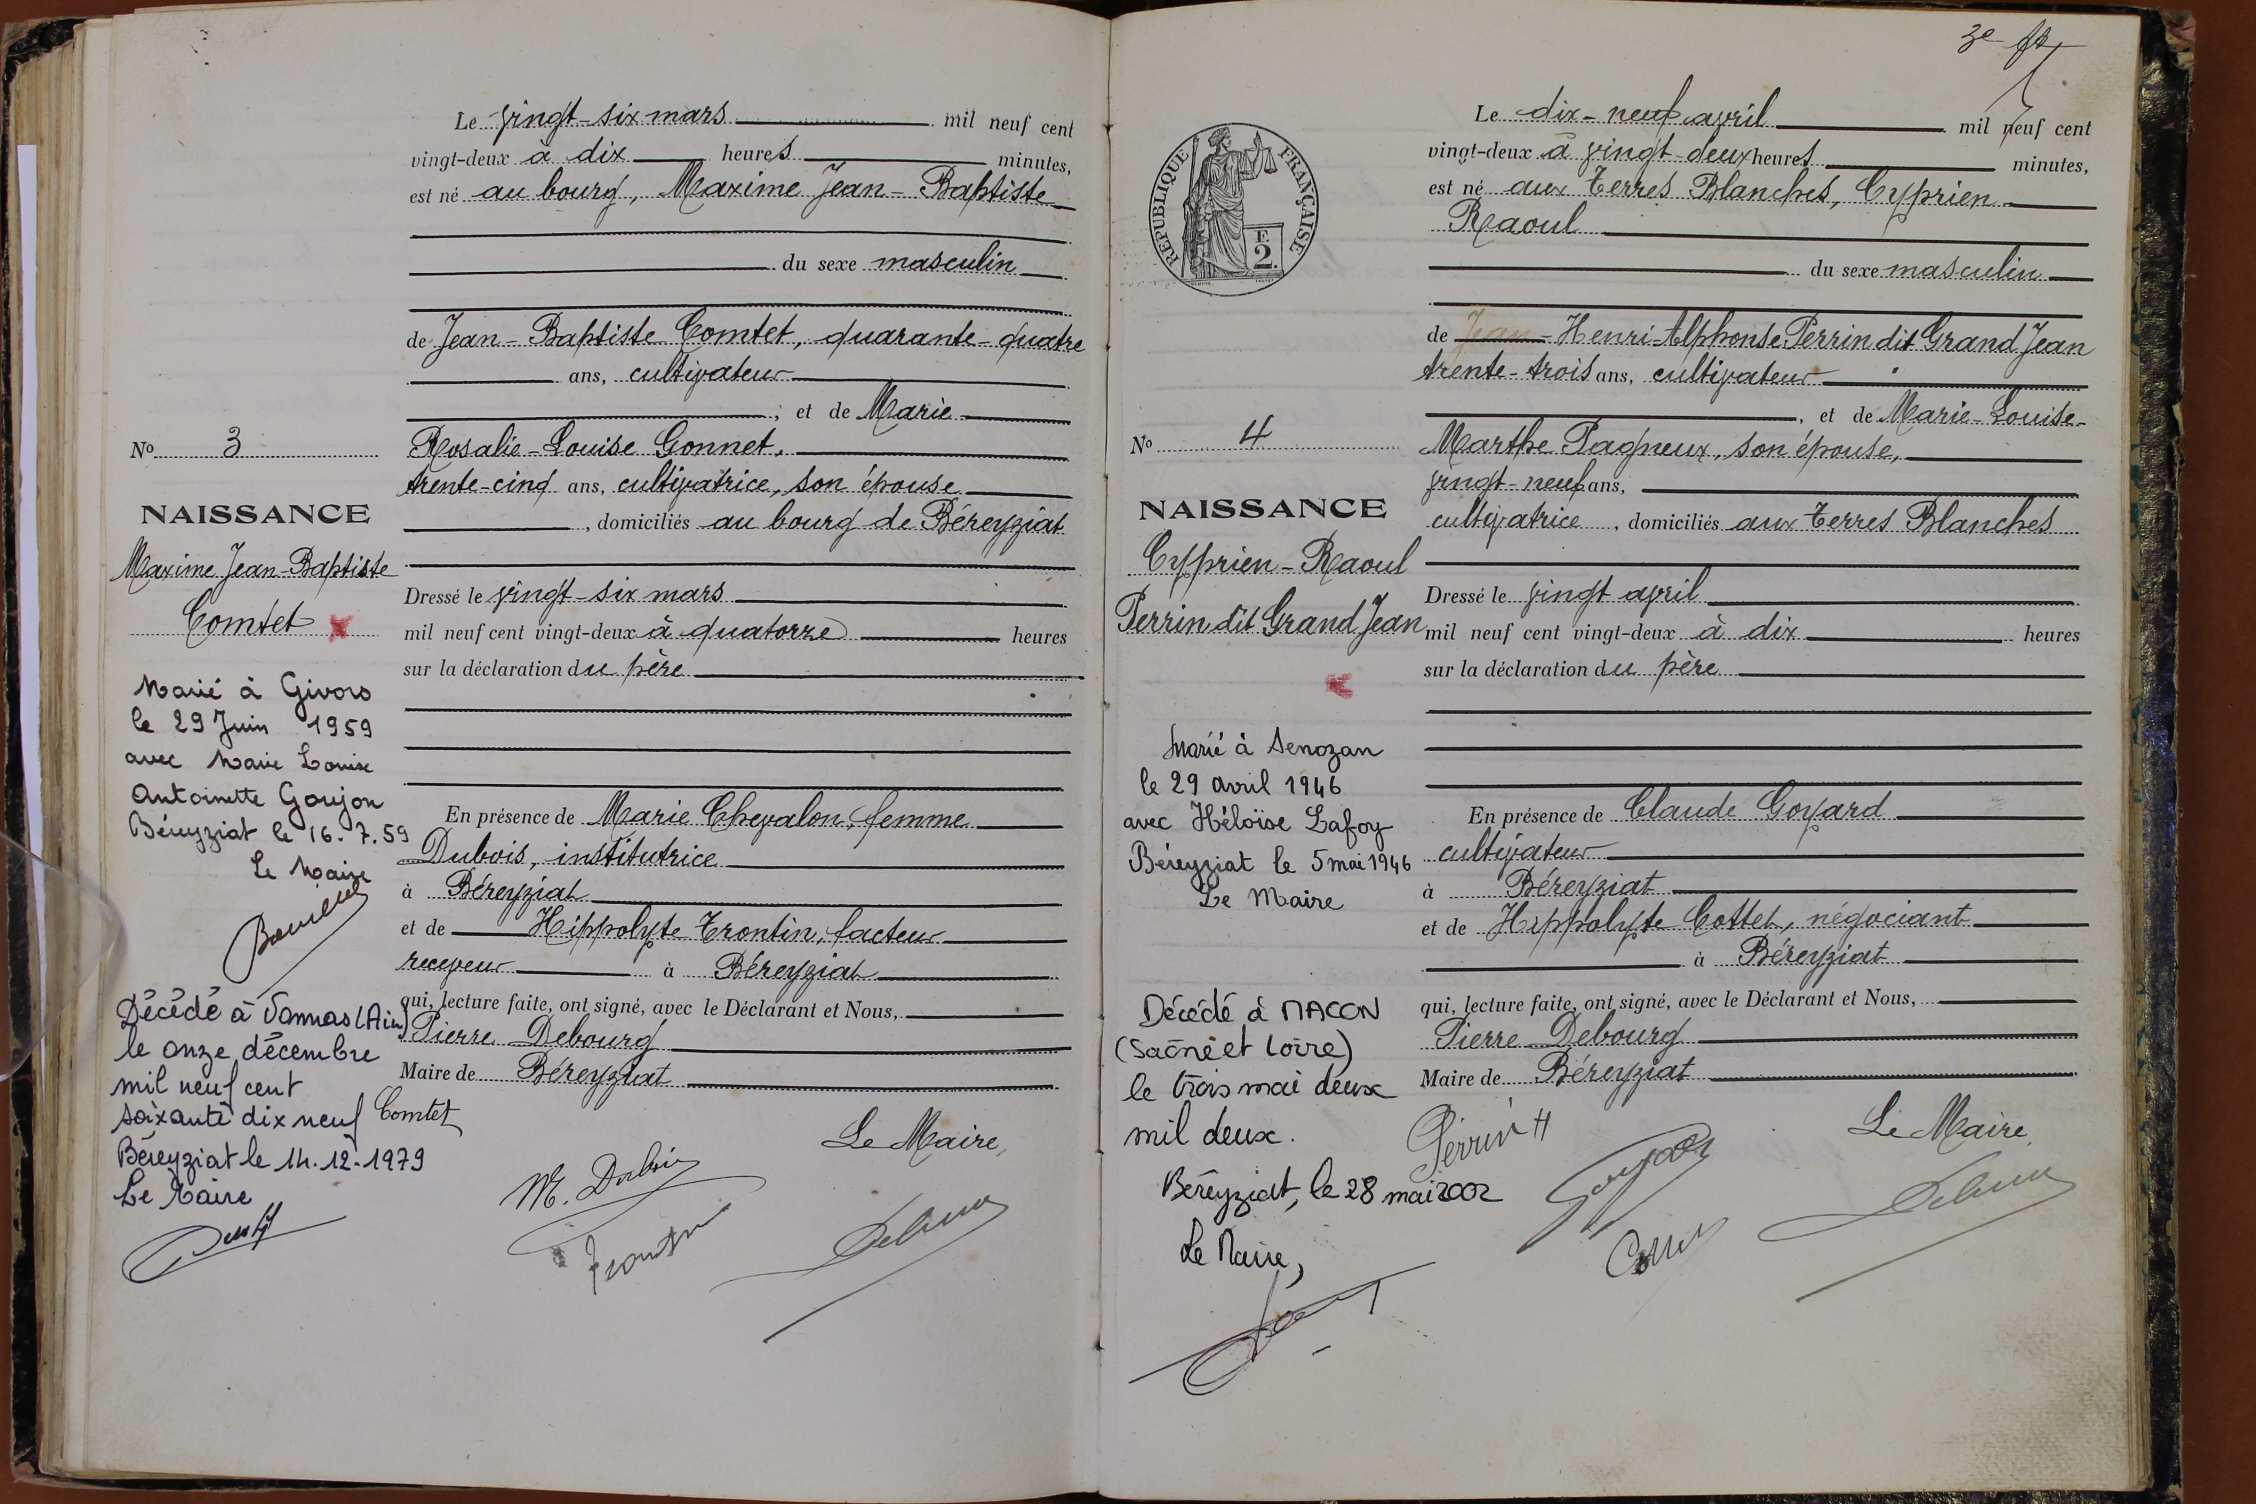 Le vingt-six mars mil neuf cent
vingt-deux à dix heures minutes,
est né au bourg, Maxime Jean-Baptiste
du sexe masculin
de Jean-Baptiste Comtet, quarante-quatre
ans, cultivateur
, et de Marie
Rosalie-Louise Gonnet,
trente-cinq ans, cultivatrice, son épouse
, domiciliés au bourg de Béreyziat
Dressé le vingt-six mars
mil neuf cent vingt-deux à quatorze heures
sur la déclaration du père
En présence de Marie Chevalon, femme
Dubois, institutrice
à Béreyziat
et de Hippolyte Trontin, facteur
receveur à Béreyziat
qui, lecture faite, ont signé, avec le Déclarant et Nous,
Pierre Debourg
Maire de Béreyziat
Comtet
M. Dubois
Le Maire,
Trontin
No 3
NAISSANCE
Maxime Jean-Baptiste
Comtet
Marié à Givors
le 29 Juin 1959
avec Marie Louise
Antoinette Goujon
Béreyziat le 16.7.59
Le Maire
Décédé à Vonnas (Ain)
le onze décembre
mil neuf cent
soixante dix neuf
Béreyziat le 14.12.1979
Le Maire
3e
Le dix-neuf avril mil neuf cent
vingt-deux à vingt-deux heures minutes,
est né aux Terres Blanches, Cyprien
Raoul
du sexe masculin
de Jean-Henri-Alphonse Perrin dit Grand Jean
trente-trois ans, cultivateur
, et de Marie-Louise-
Marthe Pagneux, son épouse,
vingt-neuf ans,
cultivatrice, domiciliés aux Terres Blanches
Dressé le vingt avril
mil neuf cent vingt-deux à dix heures
sur la déclaration du père
En présence de Claude Goyard
cultivateur
à Béreyziat
et de Hippolyte Cottet, négociant
à Béreyziat
qui, lecture faite, ont signé, avec le Déclarant et Nous,
Pierre Debourg
Maire de Béreyziat
Perrin H
Goyard
Le Maire,
REPUBLIQUE FRANÇAISE
F.
2.
No 4
NAISSANCE
Cyprien-Raoul
Perrin dit Grand Jean
Marié à Senozan
le 29 avril 1946
avec Héloïse Lafoy
Béreyziat le 5 mai 1946
Le Maire
Décédé à MACON
(Saône et Loire)
le trois mai deux
mil deux.
Béreyziat, le 28 mai 2002
Le Maire,